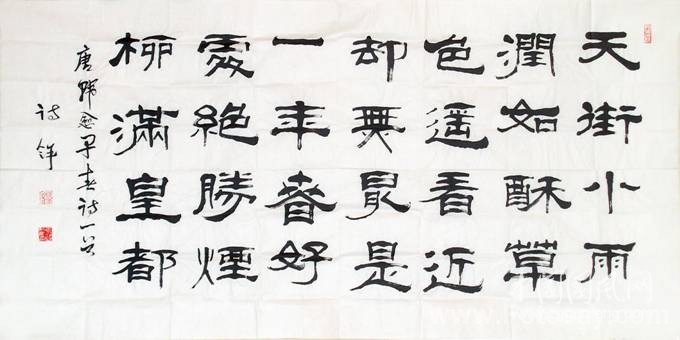 天街小雨
潤如酥草
色遥看近
却無最是
一年春好
處絕勝煙
柳滿皇都
唐韩愈早春诗一首
诗